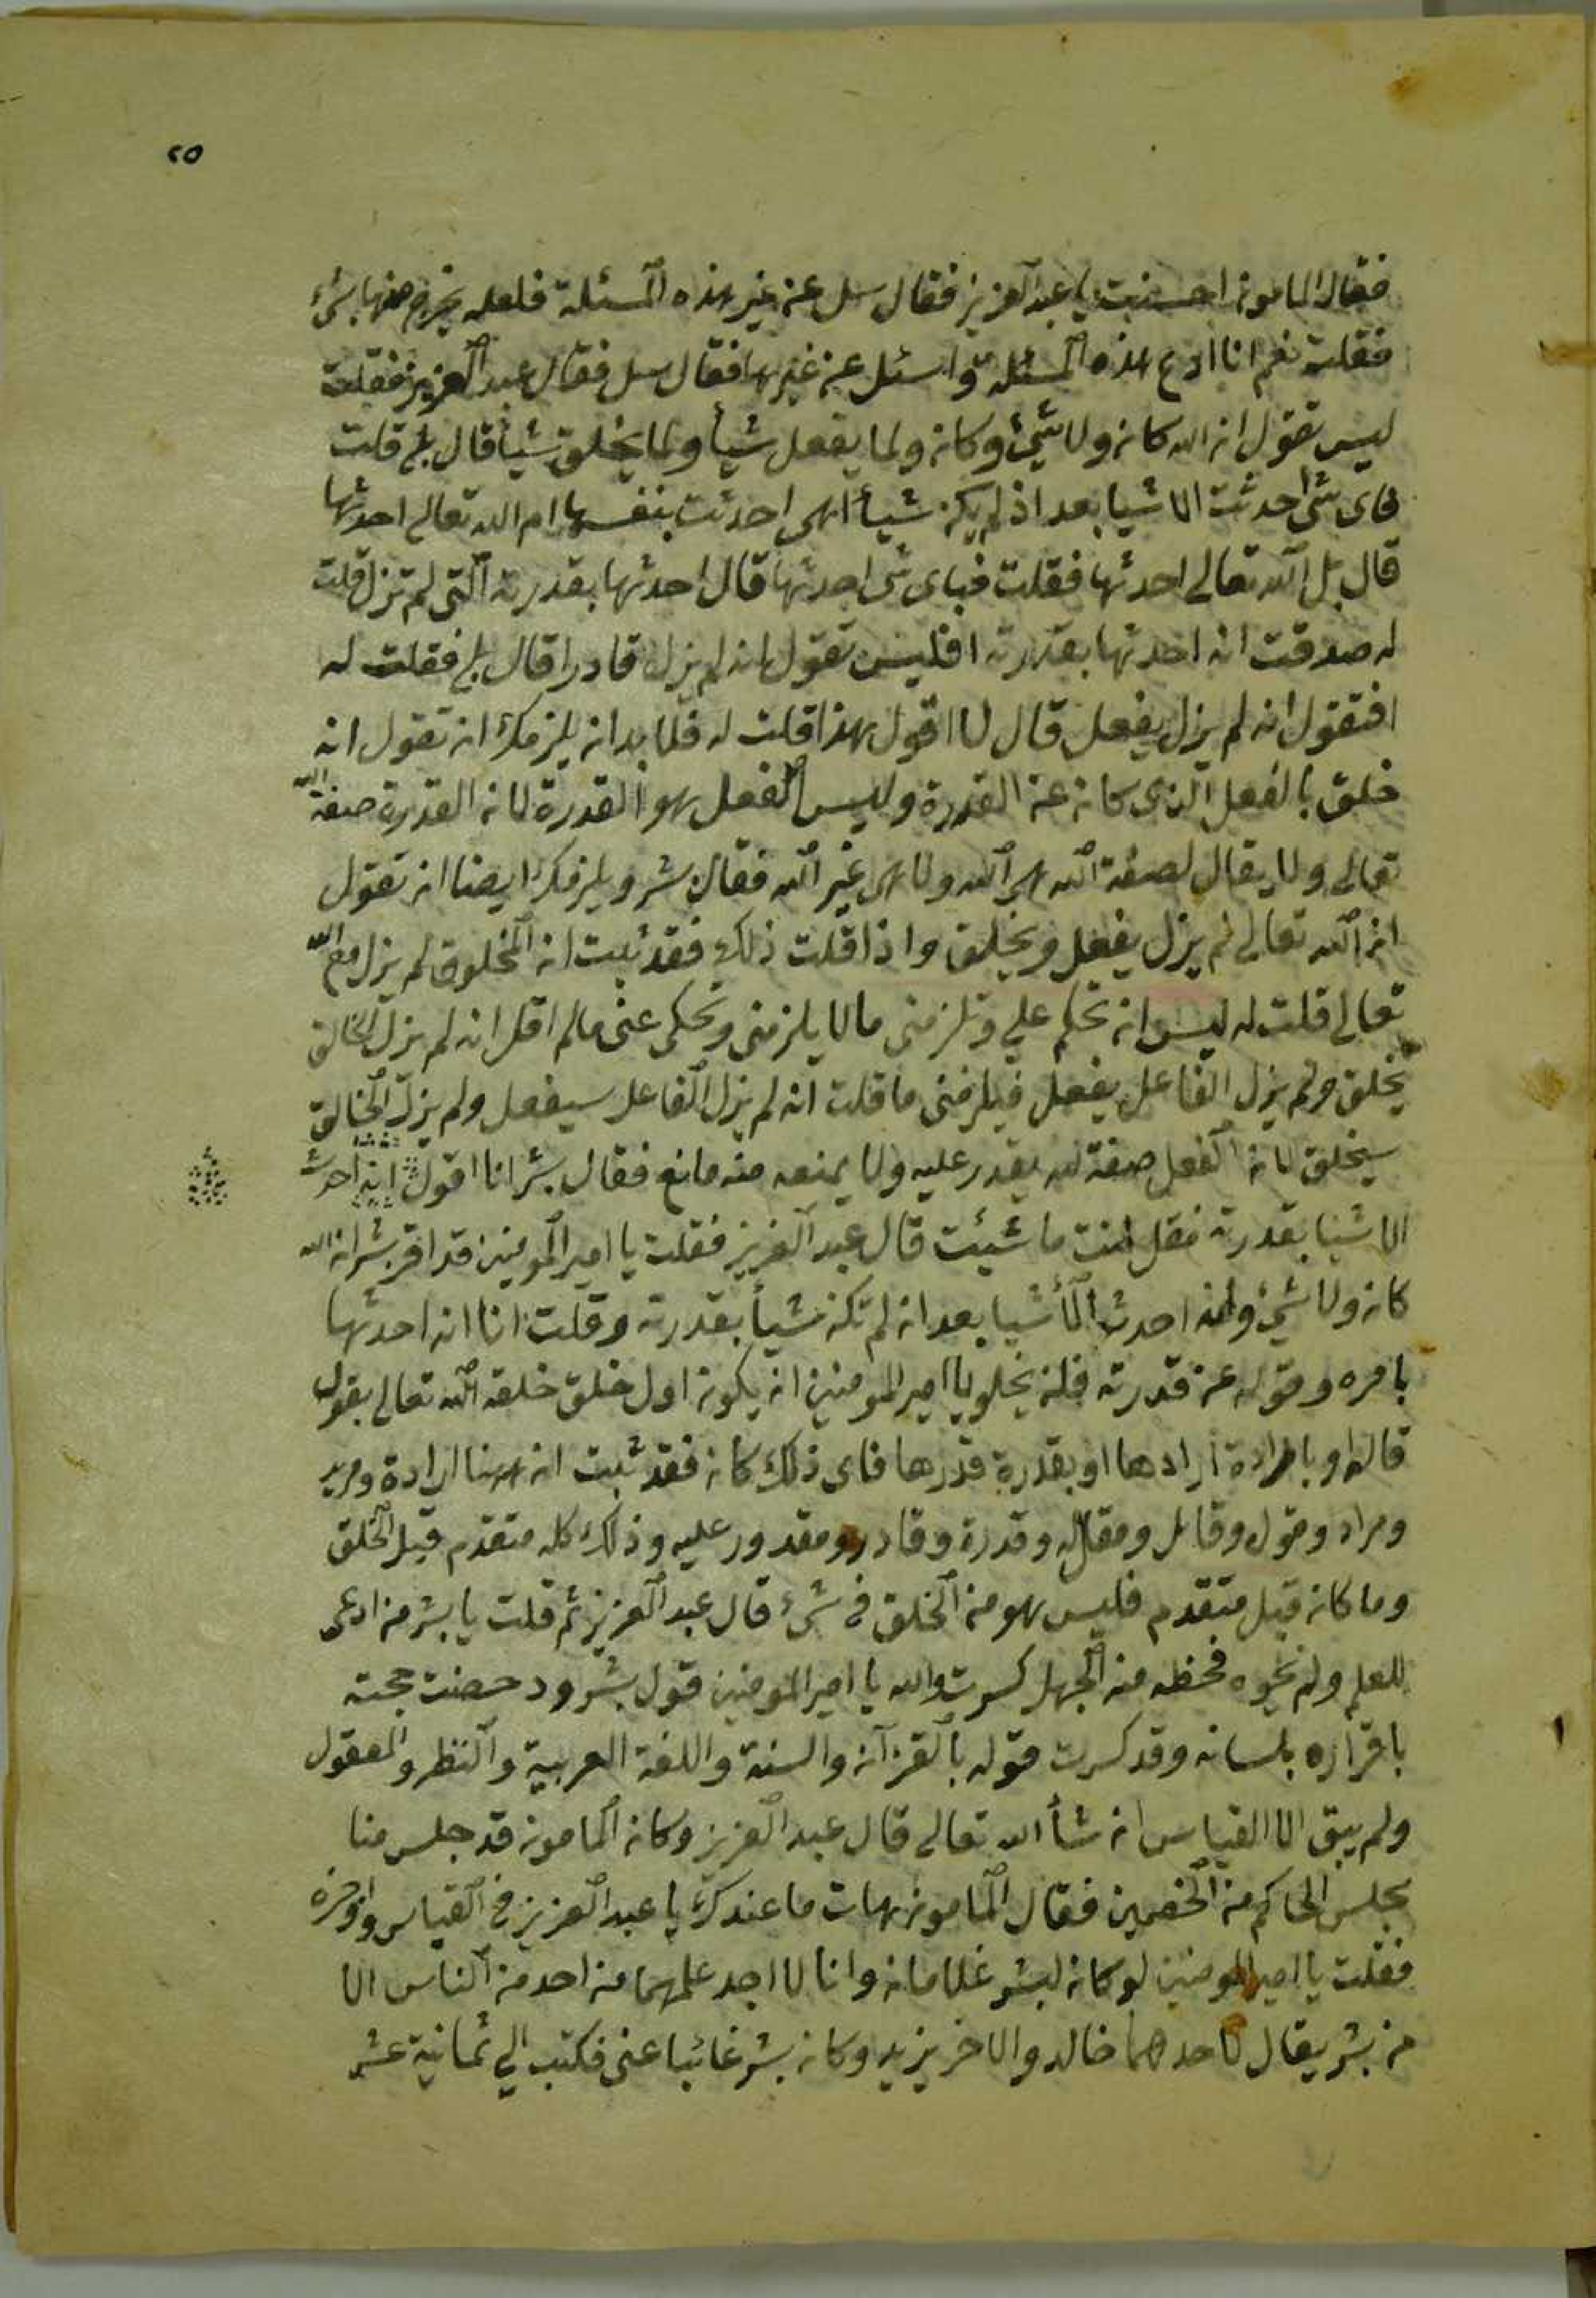 ٢٥
فقال المامون احسنت يا عبد العزيز فقال سل عن غير هذه المسئلة فلعله يخرج منها بشئ
فقلت نعم انا ادع هذه المسئلة واسئل عن غيرها فقال سل فقال عبد العزيز فقلت
ليس تقول ان الله كان ولا شئ وكان ولما يفعل شيأ ولما يخلق شيأ قال بلى قلت
فاى شئ احدثت الاشيا بعد اذ لم يكن شيأ اهى احدثت بنفسها ام الله تعالى احدثها
قال بل الله تعالى احدثها فقلت فباى شى احدثها قال احدثها بقدرته التى لم تزل قلت
له صدقت انه احدثها بقدرته افليس تقول انه لم يزل قادرا قال بلى فقلت له
افتقول انه لم يزل يفعل قال لا اقول هذا قلت له فلا بد ان يلزمك ان تقول انه
خلق بالفعل الذى كان عن القدرة وليس الفعل هو القدرة لان القدرة صفة الله
تعالى ولا يقال لصفة الله هى الله ولا هى غير الله فقال بشر ويلزمك ايضا ان تقول
ان الله تعالى لم يزل يفعل ويخلق واذا قلت ذلك فقد ثبت ان المخلوق لم يزل مع الله
تعالى قلت له ليس ان تحكم علي وتلزمنى ما لا يلزمنى وتحكى عنى مالم اقل انه لم يزل الخالق
يخلق ولم يزل الفاعل يفعل فيلزمنى ما قلت انه لم يزل الفاعل سيفعل ولم يزل الخالق
سيخلق لان الفعل صفة لله يقدر عليه ولا يمنعه منه مانع فقال بشر انا اقول انه احدث
الاشيا بقدرته فقل انت ما شيئت قال عبد العزيز فقلت يا امير المومنين قد اقر بشر ان الله
كان ولا شئ وانه احدث الأشيا بعد ان لم تكن شيأ بقدرته وقلت انا انه احدثها
بامره وقوله عن قدرته فلن يخلو يا امير المومنين ان يكون اول خلق خلقه الله تعالى بقول
قاله او بارادة ارادها او بقدرة قدرها فاى ذلك كان فقد ثبت ان ههنا ارادة ومريد
ومراد وقول وقائل ومقال له وقدرة وقادر ومقدور عليه وذلك كله متقدم قبل الخلق
وما كان قبل متقدم فليس هو من الخلق فى شئ قال عبد العزيز ثم قلت يا بشر من ادعى
للعلم ولم نحوه فحظه منه الجهل كسرت والله يا امير المومنين قول بشر ودحضت حجته
باقراره بلسانه وقد كسرت قوله بالقرآن والسنة واللغة العربية والنظر والمعقول
ولم يبق الا القياس ان شأ الله تعالى قال عبد العزيز وكان المامون قد جلس منا
مجلس الحاكم من الخصمين فقال المامون هات ما عندك يا عبد العزيز فى القياس واوجزه
فقلت يا امير المومنين لو كان لبشر غلامان وانا لا اجد علمهما من احد من الناس الا
من بشر يقال لاحدهما خالد والاخر يزيد وكان بشر غائبا عنى فكتب الي ثمانية عشر